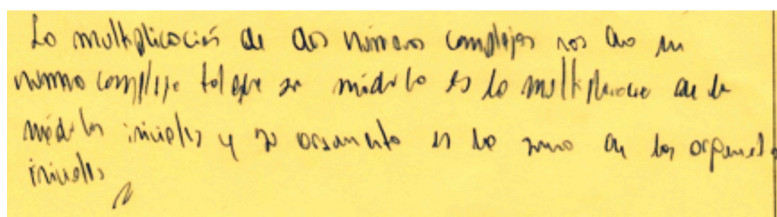 La multiplicación de dos números complejos nos da un
número complejo tal que su módulo es la multiplicación de los
módulos iniciales y su argumento es la suma de los argumentos
iniciales